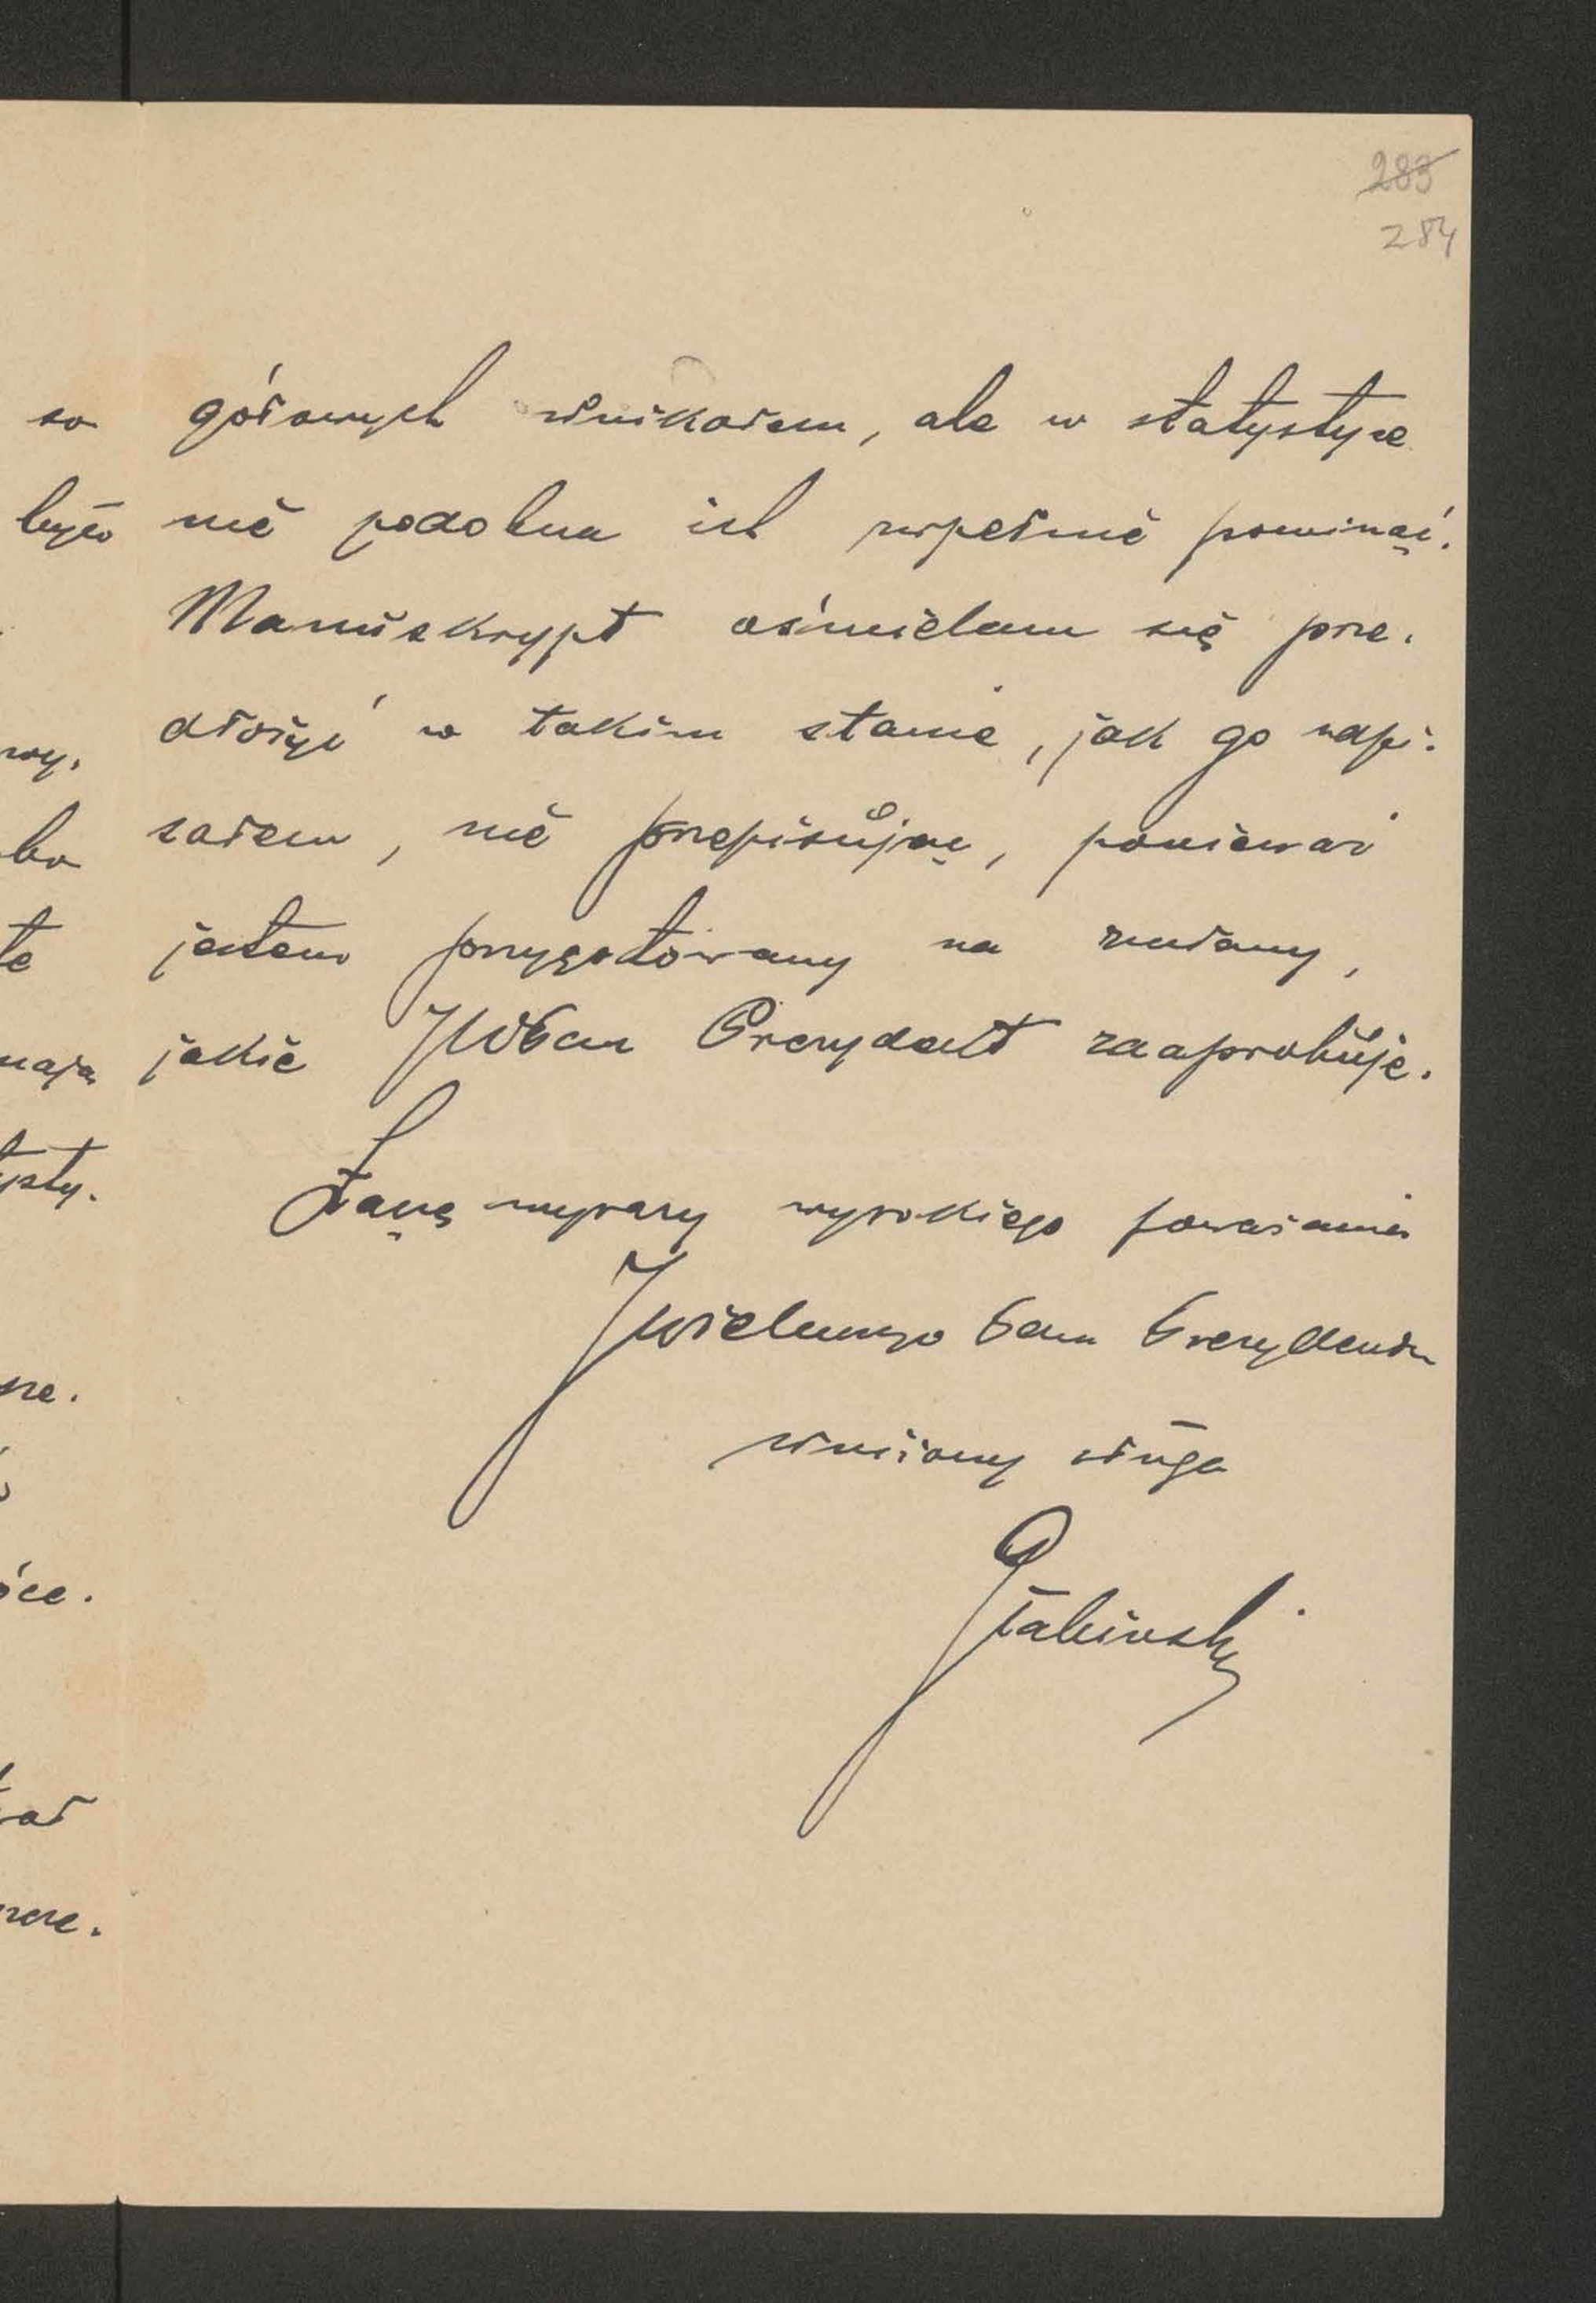 283
284
gółowych unikałem, ale w statystyce
nie podobna ich zupełnie pominąć.
Manuskrypt ośmielam się prze-
dłożyć w takim stanie, jak go napi-
sałem, nie przepisując, ponieważ
jestem przygotowany na zmiany,
jakie JWPan Prezydent zaaprobuje.
Łączę wyrazy wysokiego poważania
JWielmnego Pana Prezydenta
uniżony sługa
Głąbiński
so
było
wy.
bo
te
mają
ysty.
ze.
óce.
ał